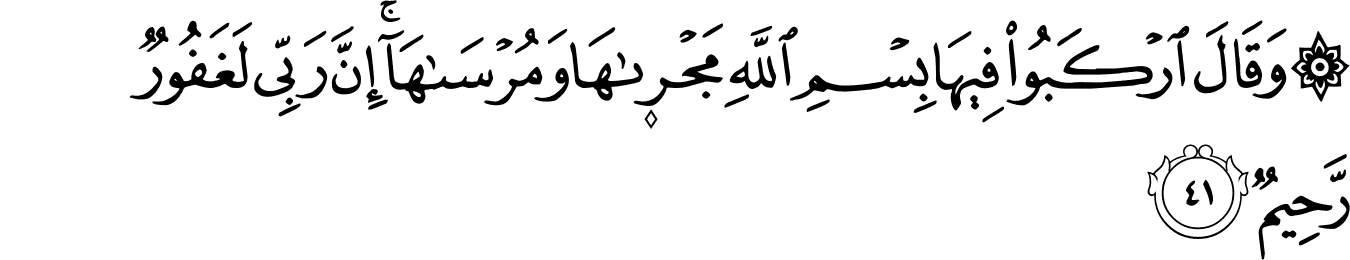 ۞ وَقَالَ ٱرۡكَبُواْ فِيهَا بِسۡمِ ٱللَّهِ مَجۡرٜىٰهَا وَمُرۡسَىٰهَآۚ إِنَّ رَبِّي لَغَفُورٞ
رَّحِيمٞ ٤١